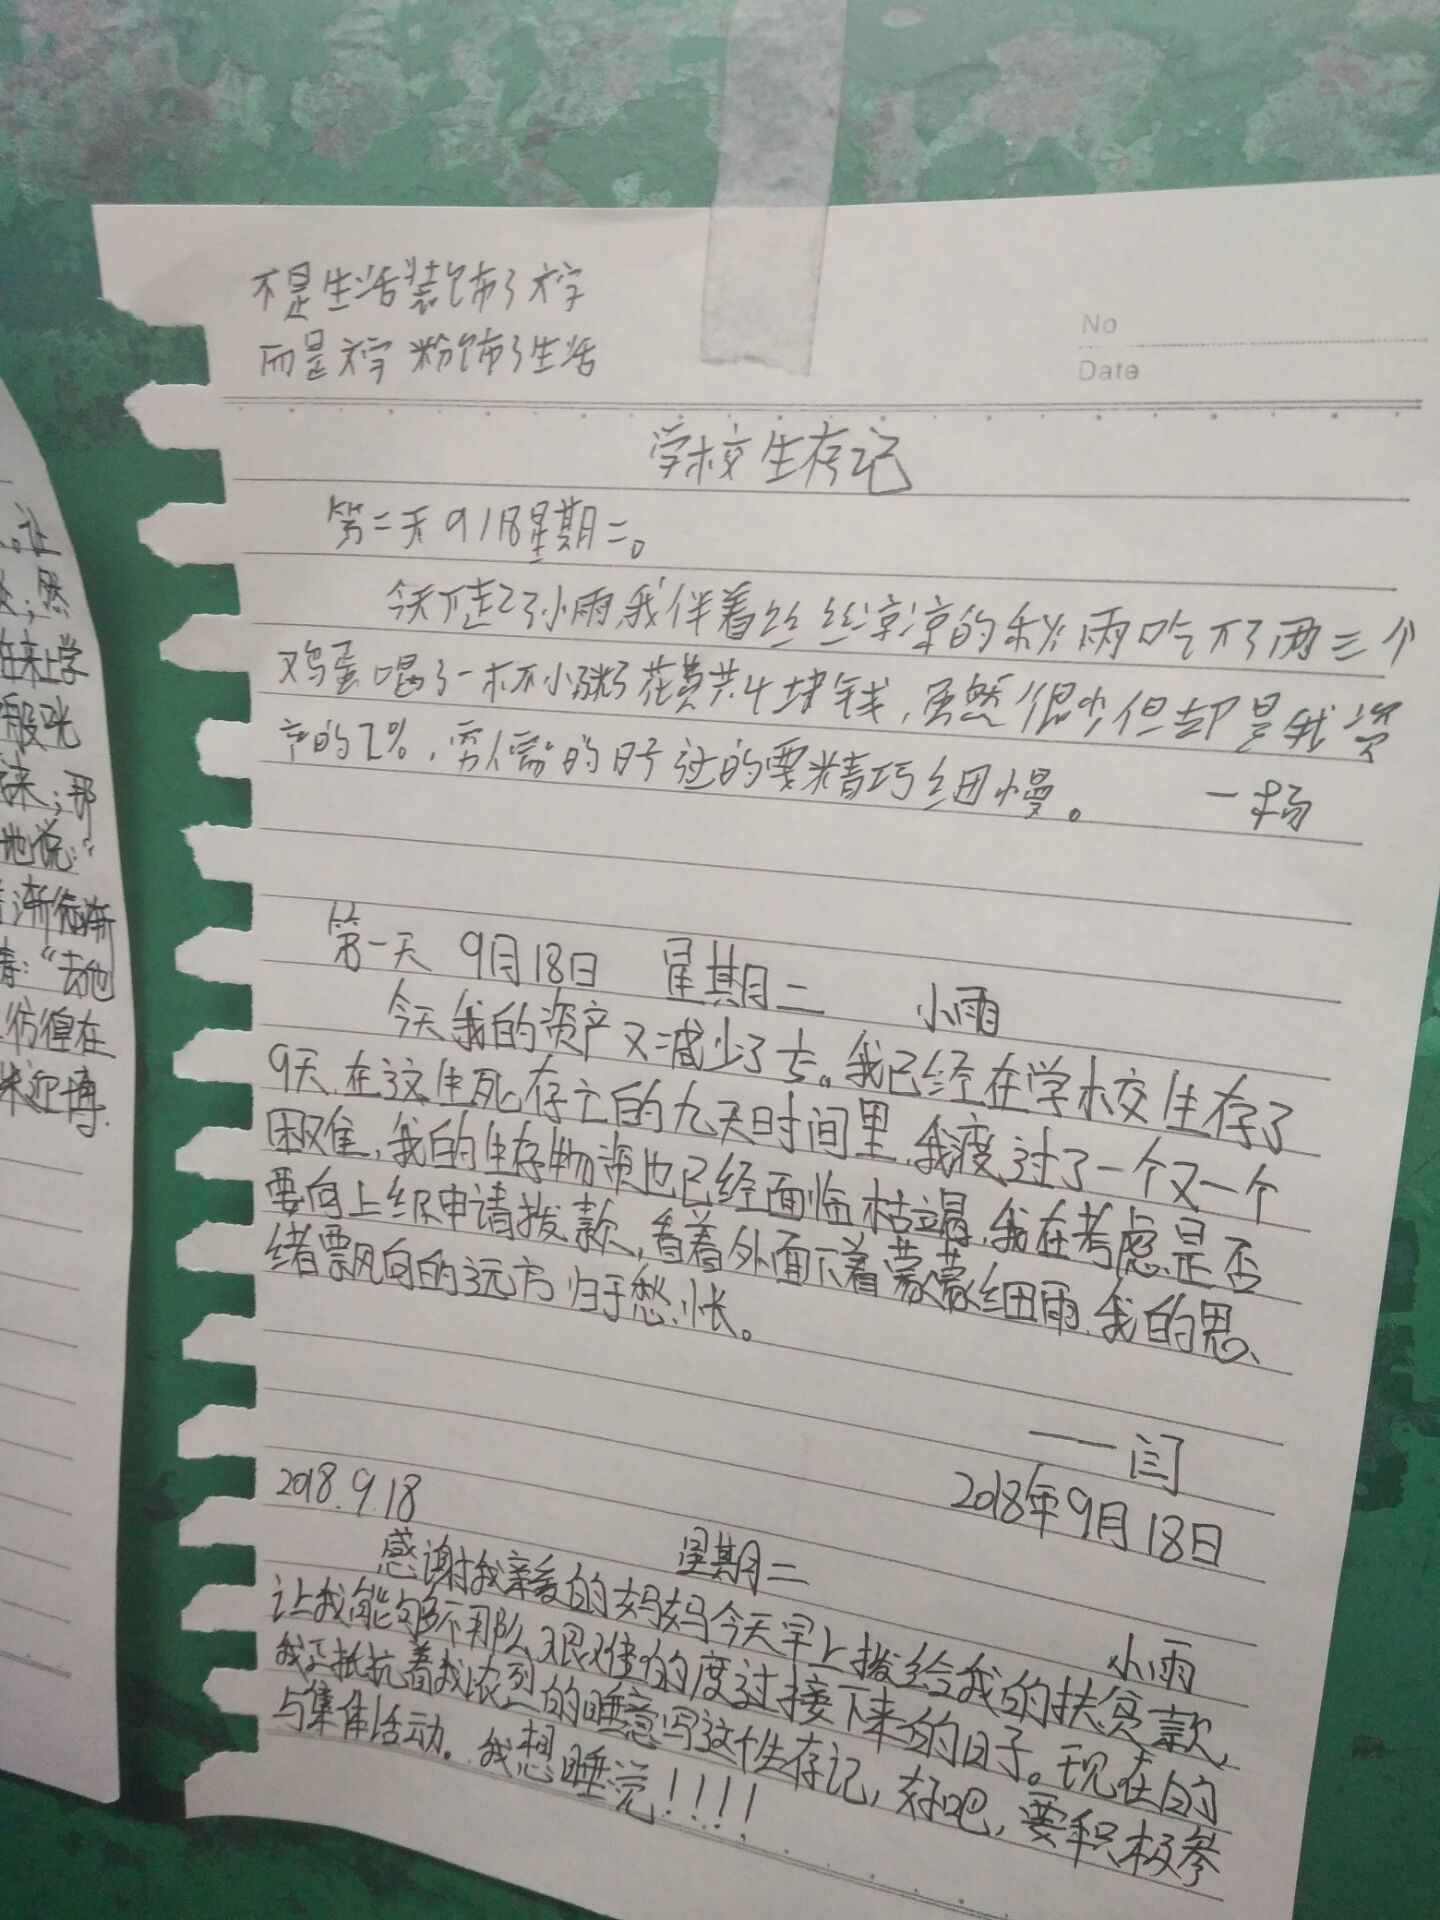 不是生活装饰了文字
而是文字粉饰了生活
No
Date
学校生存记
第二天 9/18星期二。
今天下起了小雨,我伴着丝丝凉凉的秋雨吃了两三个
鸡蛋喝了一杯小粥花费共4块钱,虽然很少但却是我资
产的2%,穷人家的日子过的要精巧细慢。 一杨
第一天 9月18日 星期二 小雨
今天我的资产又减少了去。我已经在学校生存了
9天,在这生死存亡的九天时间里,我渡过了一个又一个
困难,我的生存物资也已经面临枯竭,我在考虑是否
要向上级申请拨款,看着外面下着蒙蒙细雨,我的思
绪飘向的远方归于愁怅。
——闫
2018年9月18日
2018.9.18 星期二 小雨
感谢我亲爱的妈妈今天早上拨给我的扶贫款,
让我能够不用那么艰难的度过接下来的日子。现在的
我正抵抗着我浓烈的睡意写这个生存记,好吧,要积极参
与集体活动。我想睡觉!!!!
让
然
在来上学
般光
来;那
地说:“
渐渐
“去他
彷徨在
来迎博